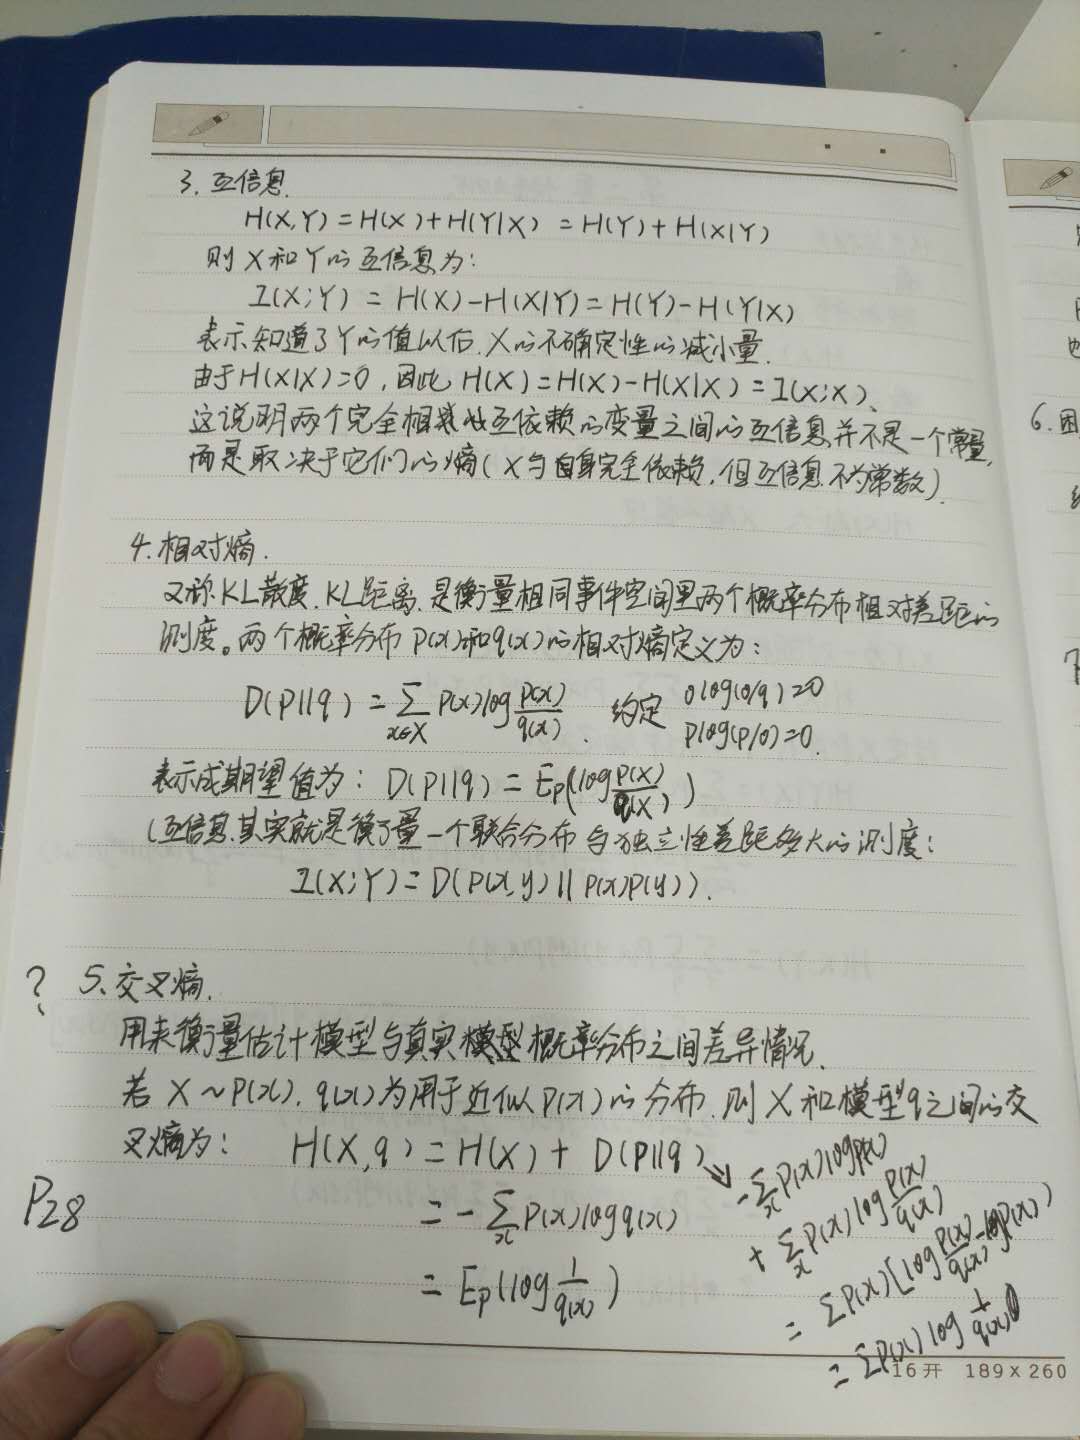 3. 互信息.
H(X,Y)=H(X)+H(Y|X) =H(Y)+H(X|Y)
则X和Y的互信息为:
I(X;Y) = H(X)-H(X|Y)=H(Y)-H(Y|X)
表示知道了Y的值以后.X的不确定性的减小量.
由于H(X|X)=0, 因此 H(X)=H(X)-H(X|X)=I(X;X)、
这说明两个完全相互依赖的变量之间的互信息并不是一个常量,
而是取决于它们的熵(X与自身完全依赖,但互信息不为常数).
4.相对熵.
又称KL散度.KL距离.是衡量相同事件空间里两个概率分布相对差距的
测度。两个概率分布 p(x)和q(x)的相对熵定义为:
D(p||q) = ∑x∈X p(x)log p(x)/q(x) . 约定 0log(0/q)=0
plog(p/0)=0.
表示成期望值为: D(p||q) = Ep(log p(X)/q(X))
(互信息其实就是衡量一个联合分布与独立性差距多大的测度:
I(X;Y)=D(p(x,y)||p(x)p(y)).
? 5.交叉熵.
用来衡量估计模型与真实模型概率分布之间差异情况.
若 X~p(x). q(x)为用于近似p(x)的分布.则X和模型q之间的交
叉熵为: H(X,q)=H(X)+ D(p||q)
P28 = -∑x p(x)logq(x)
= Ep(log 1/q(x))
-∑x p(x)logp(x)
+ ∑x p(x)log p(x)/q(x)
= ∑p(x)[log p(x)/q(x) -logp(x))
= ∑p(x)log 1/q(x)
16开 189×260
6.